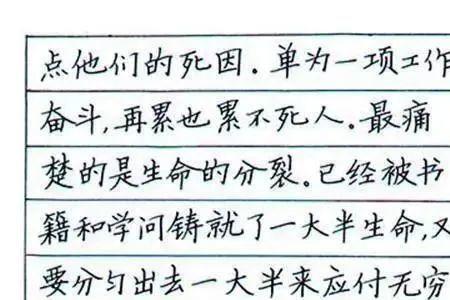 点他们的死因.单为一项工作
奋斗,再累也累不死人.最痛
楚的是生命的分裂。已经被书
籍和学问铸就了一大半生命,又
要分匀出去一大半来应付无穷